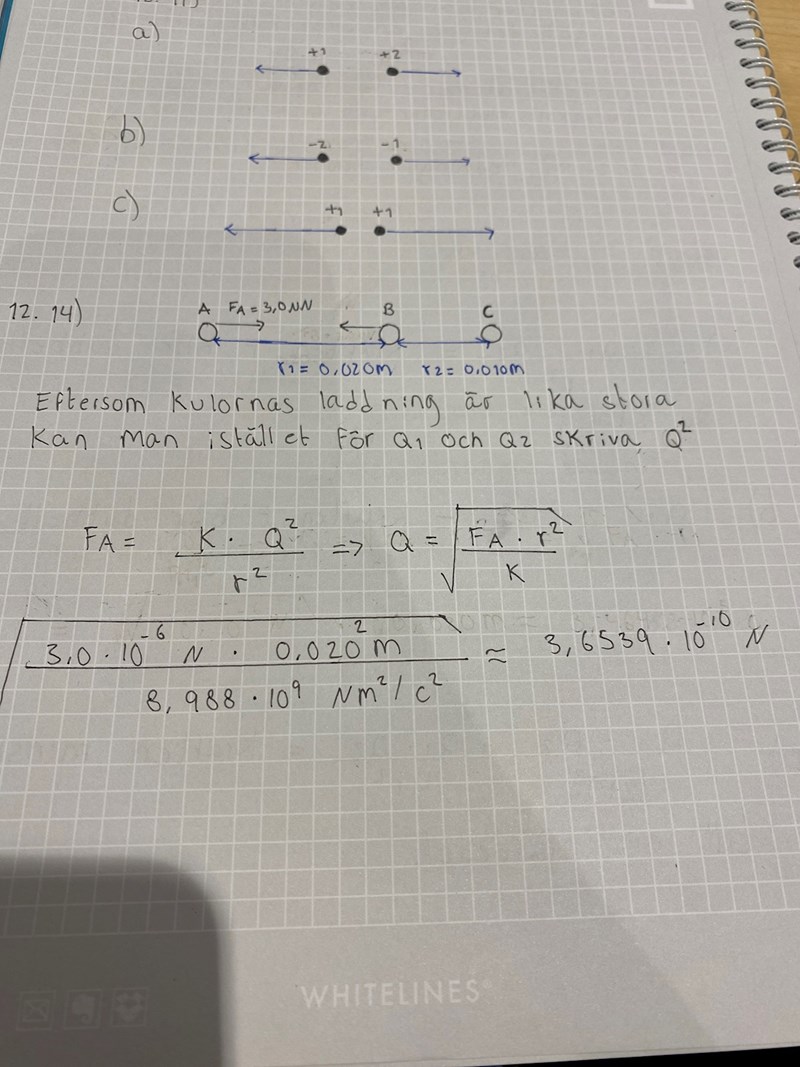 a)
+1 +2
b)
-2 -1
c)
+1 +1
12. 14)
A FA = 3,0 µN B C
r1 = 0,020m r2 = 0,010m
Eftersom kulornas laddning är lika stora
kan man istället för Q1 och Q2 skriva Q²
FA = K · Q² / r² => Q = √(FA · r² / K)
√(3,0 · 10⁻⁶ N · 0,020² m / 8,988 · 10⁹ Nm²/C²) ≈ 3,6539 · 10⁻¹⁰ N
WHITELINES®